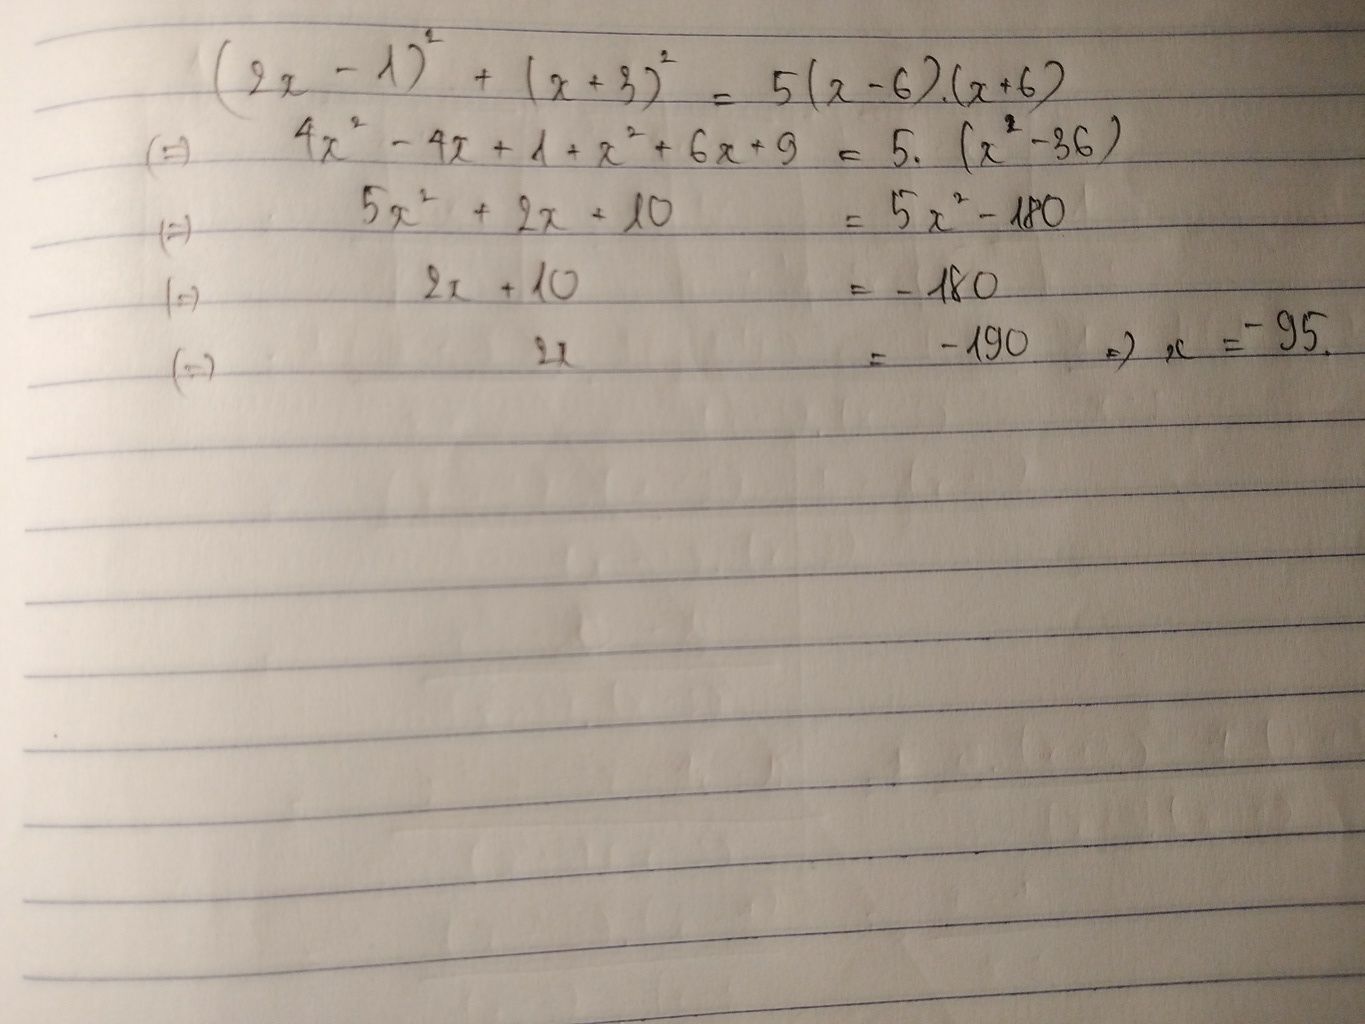 (2x - 1)² + (x + 3)² = 5(x - 6).(x + 6)
(=) 4x² - 4x + 1 + x² + 6x + 9 = 5. (x² - 36)
(=) 5x² + 2x + 10 = 5x² - 180
(=) 2x + 10 = - 180
(=) 2x = - 190 => x = - 95.